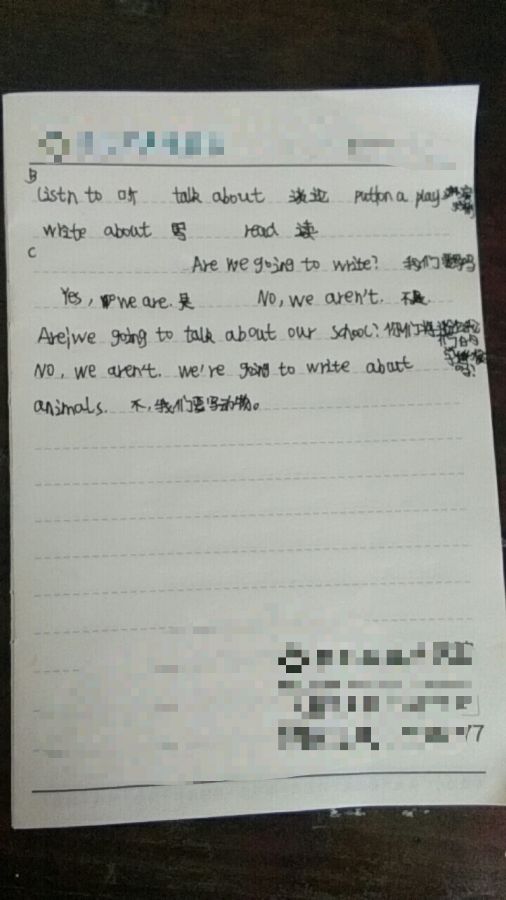 B
Listn to 听 talk about 谈论 putton a play
write about 写 read 读
C
Are we going to write? 我们要写吗
Yes, we are. 是 No, we aren't. 不是
Are we going to talk about our school? 你们将
No, we aren't. we're going to write about
animals. 不,我们要写动物。
77